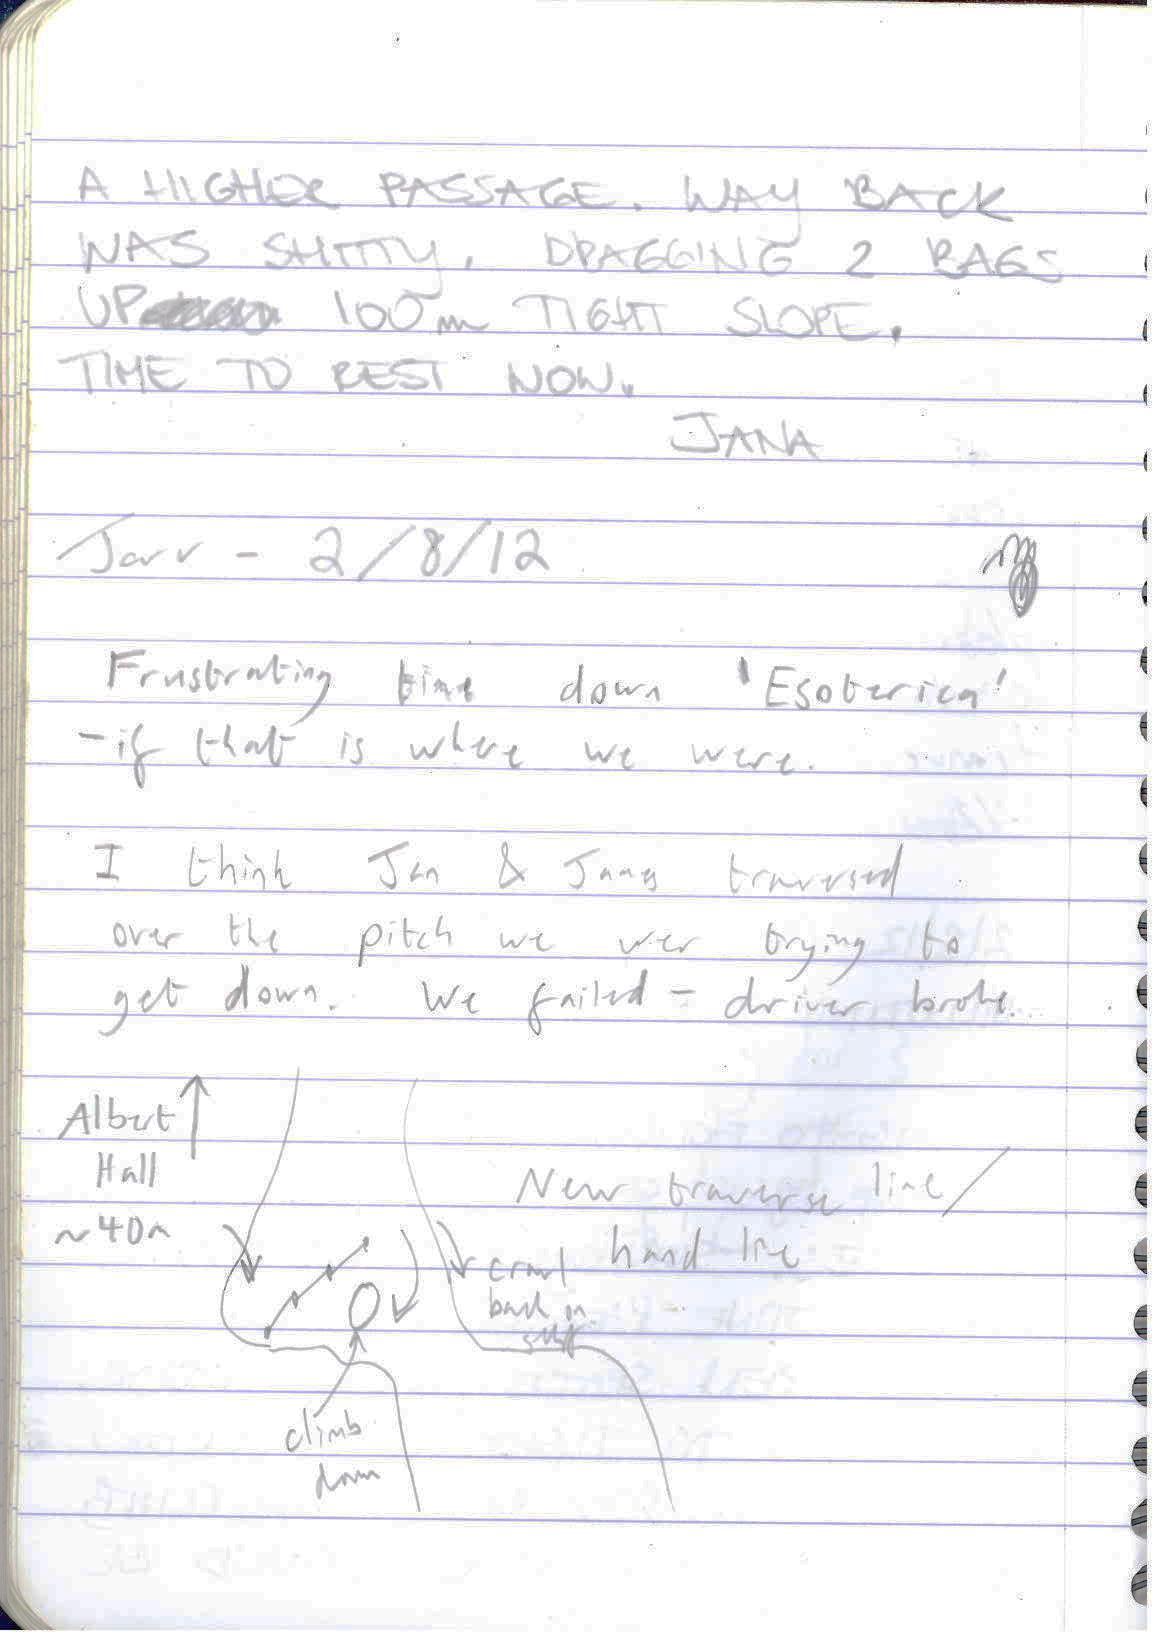 A HIGHER PASSAGE. WAY BACK
WAS SHITTY, DRAGGING 2 BAGS
UP 100m TIGHT SLOPE.
TIME TO REST NOW.
JANA
Jarv - 2/8/12
Frustrating time down 'Esoterica'
- if that is where we were.
I think Jan & Jana traversed
over the pitch we wer trying to
get down. We failed - driver broke.
Albert
Hall
~40m
New traverse line/
hand line
crawl
back on
climb
down